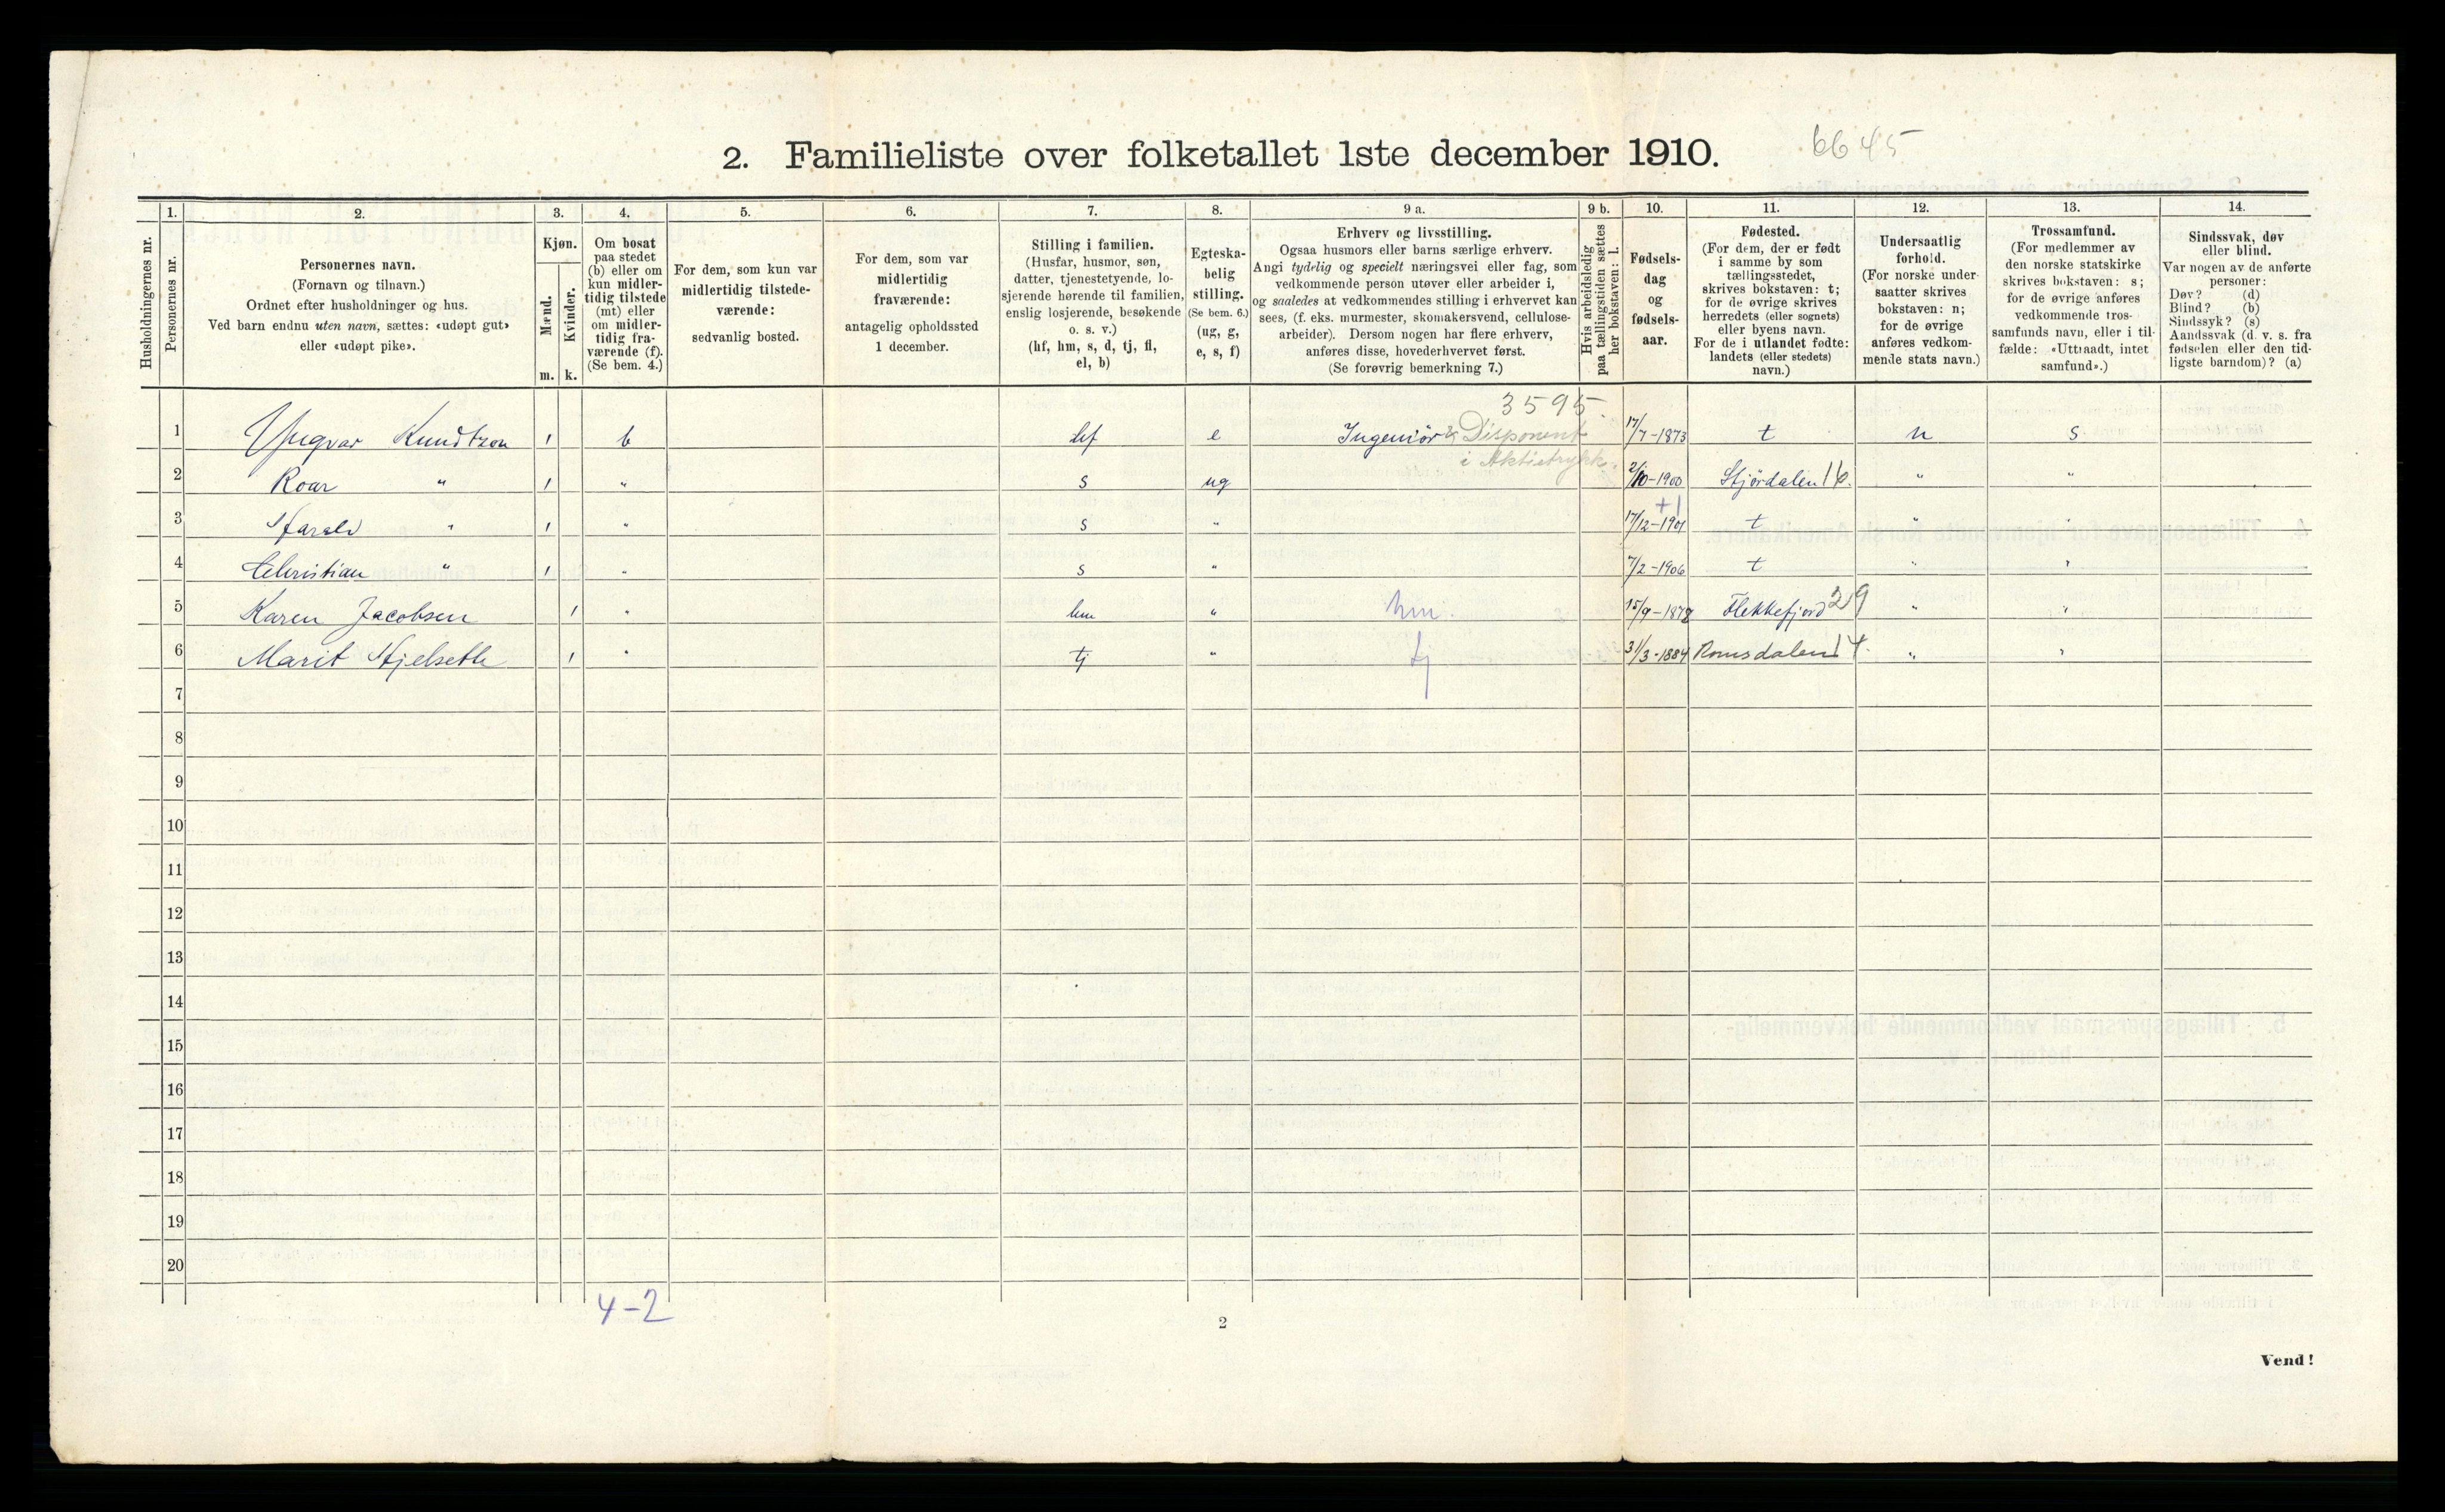 2. Familieliste over folketallet 1ste december 1910. 6645
Husholdningernes nr.
1.
Personernes nr.
2.
Personernes navn.
(Fornavn og tilnavn.)
Ordnet efter husholdninger og hus.
Ved barn endnu uten navn, sættes: «udøpt gut»
eller «udøpt pike».
3.
Kjøn.
Mænd.
m.
Kvinder.
k.
4.
Om bosat
paa stedet
(b) eller om
kun midler-
tidig tilstede
(mt) eller
om midler-
tidig fra-
værende (f).
(Se bem. 4.)
5.
For dem, som kun var
midlertidig tilstede-
værende:
sedvanlig bosted.
6.
For dem, som var
midlertidig
fraværende:
antagelig opholdssted
1 december.
7.
Stilling i familien.
(Husfar, husmor, søn,
datter, tjenestetyende, lo-
sjerende hørende til familien,
enslig losjerende, besøkende
o. s. v.)
(hf, hm, s, d, tj, fl,
el, b)
8.
Egteska-
belig
stilling.
(Se bem. 6.)
(ug, g,
e, s, f)
9 a.
Erhverv og livsstilling.
Ogsaa husmors eller barns særlige erhverv.
Angi tydelig og specielt næringsvei eller fag, som
vedkommende person utøver eller arbeider i,
og saaledes at vedkommendes stilling i erhvervet kan
sees, (f. eks. murmester, skomakersvend, cellulose-
arbeider). Dersom nogen har flere erhverv,
anføres disse, hovederhvervet først.
(Se forøvrig bemerkning 7.)
9 b.
Hvis arbeidsledig
paa tællingstiden sættes
her bokstaven: l.
10.
Fødsels-
dag
og
fødsels-
aar.
11.
Fødested.
(For dem, der er født
i samme by som
tællingsstedet,
skrives bokstaven: t;
for de øvrige skrives
herredets (eller sognets)
eller byens navn.
For de i utlandet fødte:
landets (eller stedets)
navn.)
12.
Undersaatlig
forhold.
(For norske under-
saatter skrives
bokstaven: n;
for de øvrige
anføres vedkom-
mende stats navn.)
13.
Trossamfund.
(For medlemmer av
den norske statskirke
skrives bokstaven: s;
for de øvrige anføres
vedkommende tros-
samfunds navn, eller i til-
fælde: «Uttraadt, intet
samfund».)
14.
Sindssvak, døv
eller blind.
Var nogen av de anførte
personer:
Døv? (d)
Blind? (b)
Sindssyk? (s)
Aandssvak (d. v. s. fra
fødselen eller den tid-
ligste barndom)? (a)
3595.
1 Yngvar Knudtzon 1 b hf e Ingeniør & Disponent 17/7-1873 t n s
i Aktietrykk.
2 Roar " 1 " s ug 2/10-1900 Stjørdalen 16. " "
+1
3 Harald " 1 " s " 17/12-1901 t " "
4 Christian " 1 " s " 7/2-1906 t " "
5 Karen Jacobsen 1 " hm " hm. 15/9-1872 Flekkefjord 29 " "
6 Marit Hjelseth 1 " tj " tj 31/3-1884 Romsdalen 14. " "
7
8
9
10
11
12
13
14
15
16
17
18
19
20
4-2
2
Vend!